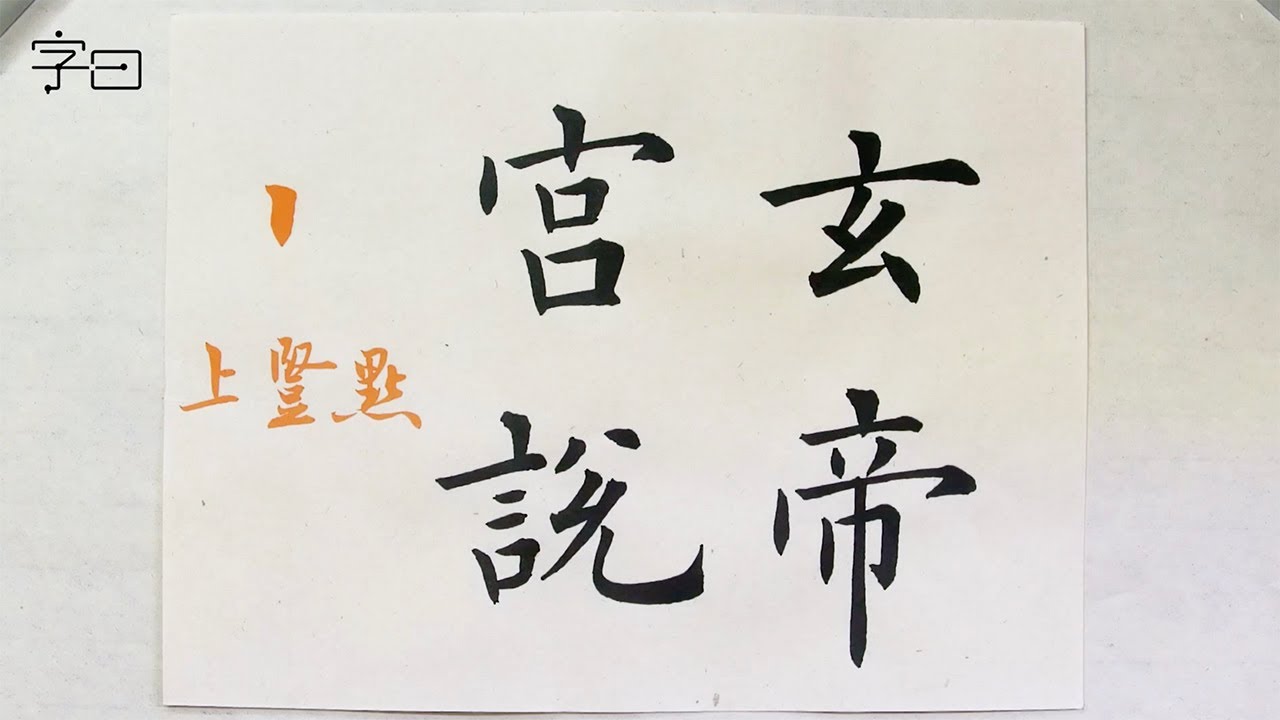 字曰
玄帝
宫說
上豎點